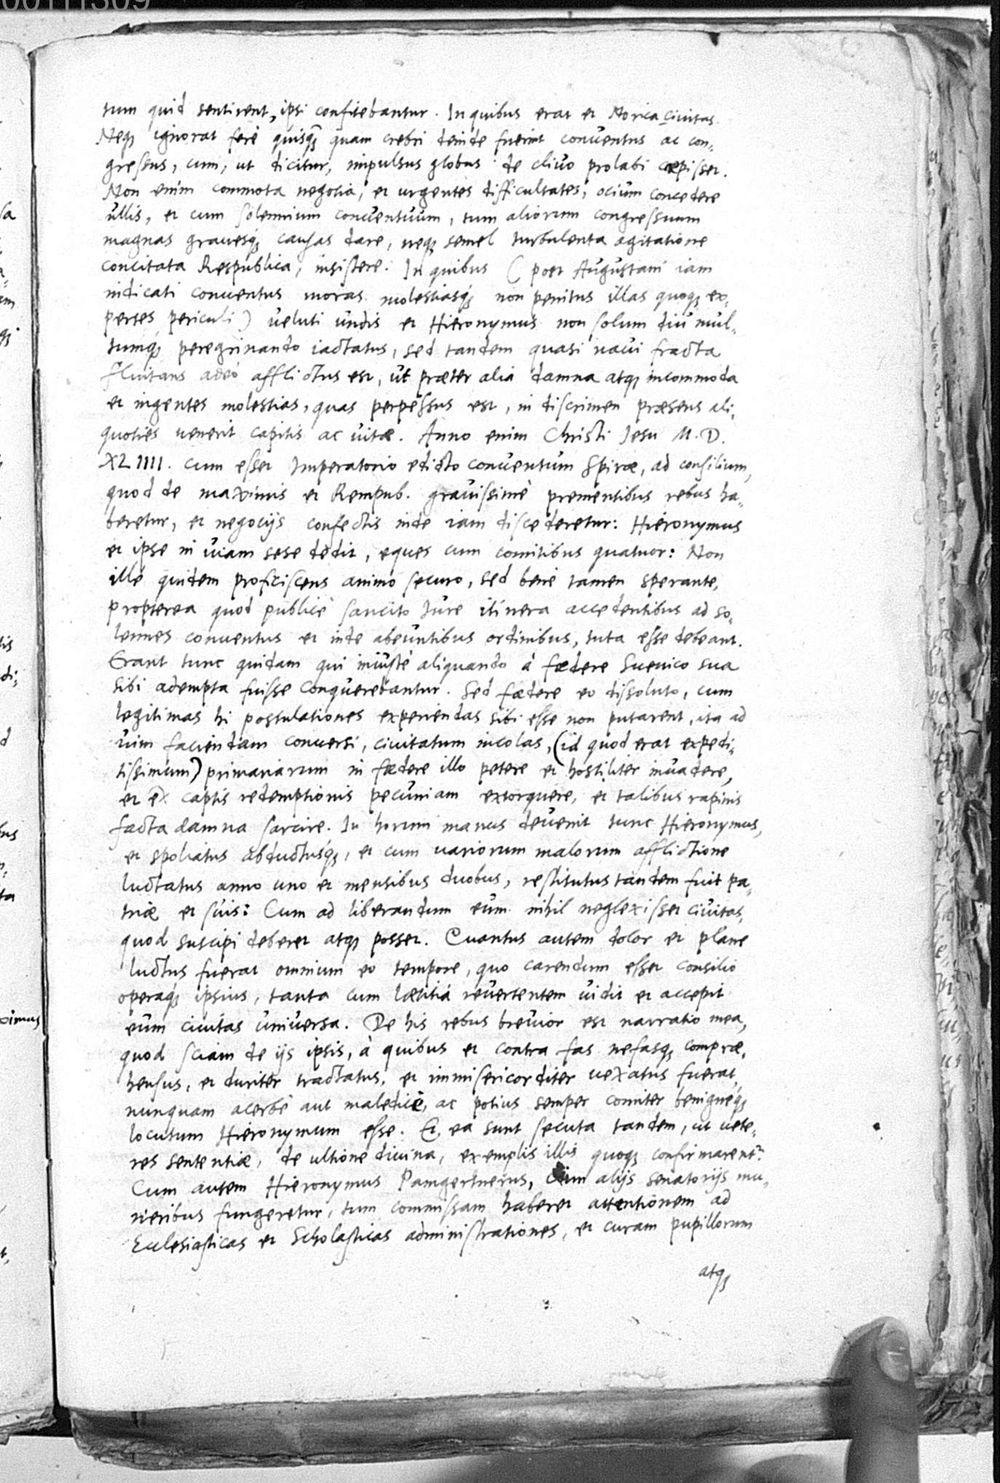 tum quid sentirent, ipsi confitebantur. In quibus erat et Norica civitas.
Neq; ignorat ferè quisq; quam crebri deinde fuerint conventus ac con-
gressus, cum, ut dicitur, impulsus globus de clivo prolabi cœpisset.
Non enim commota negotia, et urgentes difficultates, ocium concedere
ullis, et cum solennium conventuum, tum aliorum congressuum
magnas gravesq; causas dare, neq; semel turbulenta agitatione
concitata Respublica, insistere. In quibus (post Augustani iam
indicati conventus moras molestiasq; non penitus illas quoq; ex-
pertes periculi) veluti undis et Hieronymus non solum diu mul-
tumq; peregrinando iactatus, sed tandem quasi navi fracta
fluitans adeò afflictus est, ut præter alia damna atq; incommoda
et ingentes molestias, quas perpessus est, in discrimen præsens ali-
quoties venerit capitis ac vitæ. Anno enim Christi Jesu M.D.
XLIIII. cum esset Imperatorio edicto conventum Spiræ, ad consilium,
quod de maximis et Rempub. gravissimè prementibus rebus ha-
beretur, et negocijs confectis inde iam discederetur: Hieronymus
et ipse in viam sese dedit, eques cum comitibus quatuor: Non
ille quidem proficiscens animo securo, sed bene tamen sperante,
propterea quod publicè sancito Jure itinera accedentibus ad so-
lennes conventus et inde abeuntibus ordinibus, tuta esse debeant.
Erant tunc quidam qui iniustè aliquando à fœdere Suevico sua
sibi adempta fuisse conquerebantur. Sed fœdere eo dissoluto, cum
legitimas hi postulationes experiendas sibi esse non putarent, ita ad
vim faciendam conversi, civitatum incolas, (id quod erat expedi-
tissimum) primariarum in fœdere illo petere et hostiliter invadere,
et ex captis redemptionis pecuniam extorquere, et talibus rapinis
facta damna sarcire. In horum manus devenit tunc Hieronymus,
et spoliatus abductusq;, et cum variorum malorum afflictione
luctatus anno uno et mensibus duobus, restitutus tandem fuit pa-
triæ et suis: Cum ad liberandum eum nihil neglexisset civitas,
quod suscipi deberet atq; posset. Quantus autem dolor et plane
luctus fuerat omnium eo tempore, quo carendum esset consilio
operaq; ipsius, tanta cum lætitia revertentem vidit et accepit
eum civitas universa. De his rebus brevior est narratio mea,
quod sciam de iis ipsis, à quibus et contra fas nefasq; compræ-
hensus, et duriter tractatus, et immisericorditer vexatus fuerat,
nunquam acerbè aut maledicè, ac potius semper comiter benigneq;
locutum Hieronymum esse. Et ea sunt secuta tandem, ut vete-
res sententiæ, de ultione divina, exemplis illis quoq; confirmarentr.
Cum autem Hieronymus Pamgertnerus, cum alijs senatorijs mu-
neribus fungeretur, tum commissam haberet attentionem ad
Ecclesiasticas et Scholasticas administrationes, et curam pupillorum
atq;